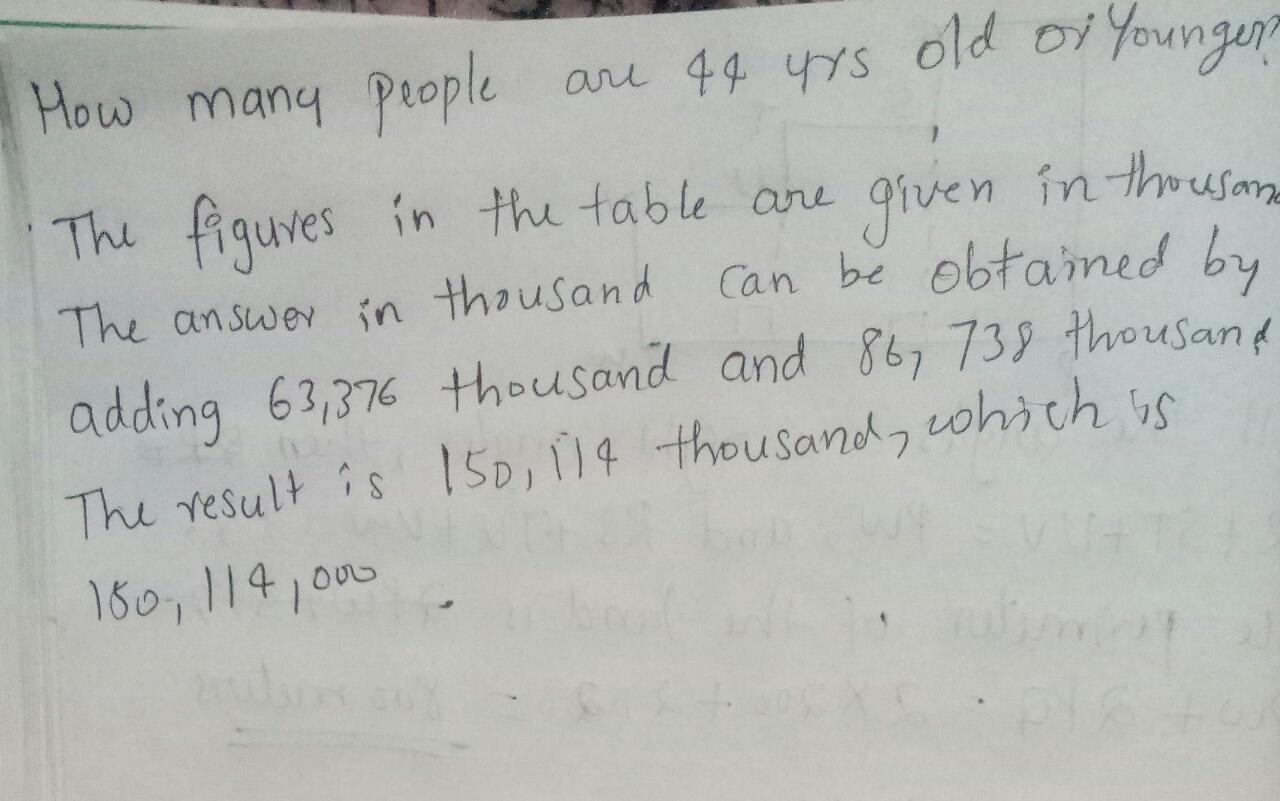 How many people are 44 yrs old or Younger?
The figures in the table are given in thousand
The answer in thousand can be obtained by
adding 63,376 thousand and 86,738 thousand
The result is 150,114 thousand, which is
150,114,000.